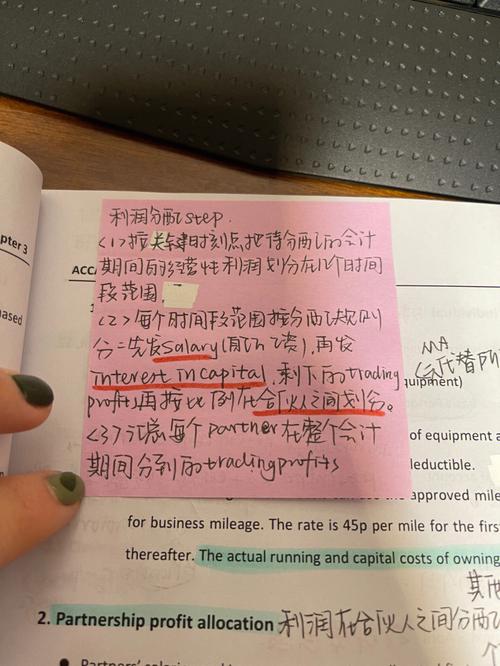 pter 3
ased
ACCA
利润分配 step.
<1>按关键时刻点,把待分配的会计
期间的经营性利润划分在几个时间
段范围
<2>每个时间段范围按分配规则
分:先发salary 再发
interest in capital,剩下的trading
profits再按比例在合伙人之间划分。
<3>汇总每个partner在整个会计
期间分到的trading profits
MA
会代替
quipment)
of equipment a
deductible.
approved mile
for business mileage. The rate is 45p per mile for the first
thereafter. The actual running and capital costs of owning
其
2. Partnership profit allocation 利润在合伙人之间分配
个
Partners'